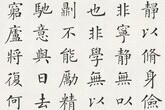 靜以脩身
非寧靜無以
也非學無以
則不能勵精
馳意與日去
窮廬將復何